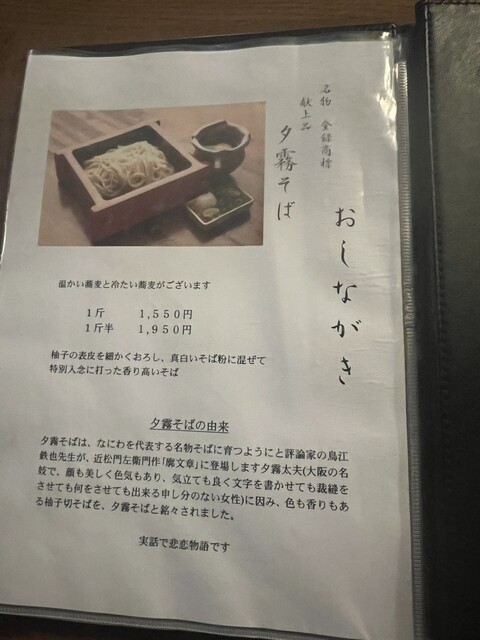 おしながき
名物 登録商標
献上品
夕霧そば
温かい蕎麦と冷たい蕎麦がございます
1斤 1,550円
1斤半 1,950円
柚子の表皮を細かくおろし、真白いそば粉に混ぜて
特別入念に打った香り高いそば
夕霧そばの由来
夕霧そばは、なにわを代表する名物そばに育つようにと評論家の鳥江
鉄也先生が、近松門左衛門作「廓文章」に登場します夕霧太夫(大阪の名
妓で、顔も美しく色気もあり、気立ても良く文字を書かせても裁縫を
させても何をさせても出来る申し分のない女性)に因み、色も香りもあ
る柚子切そばを、夕霧そばと銘々されました。
実話で悲恋物語です